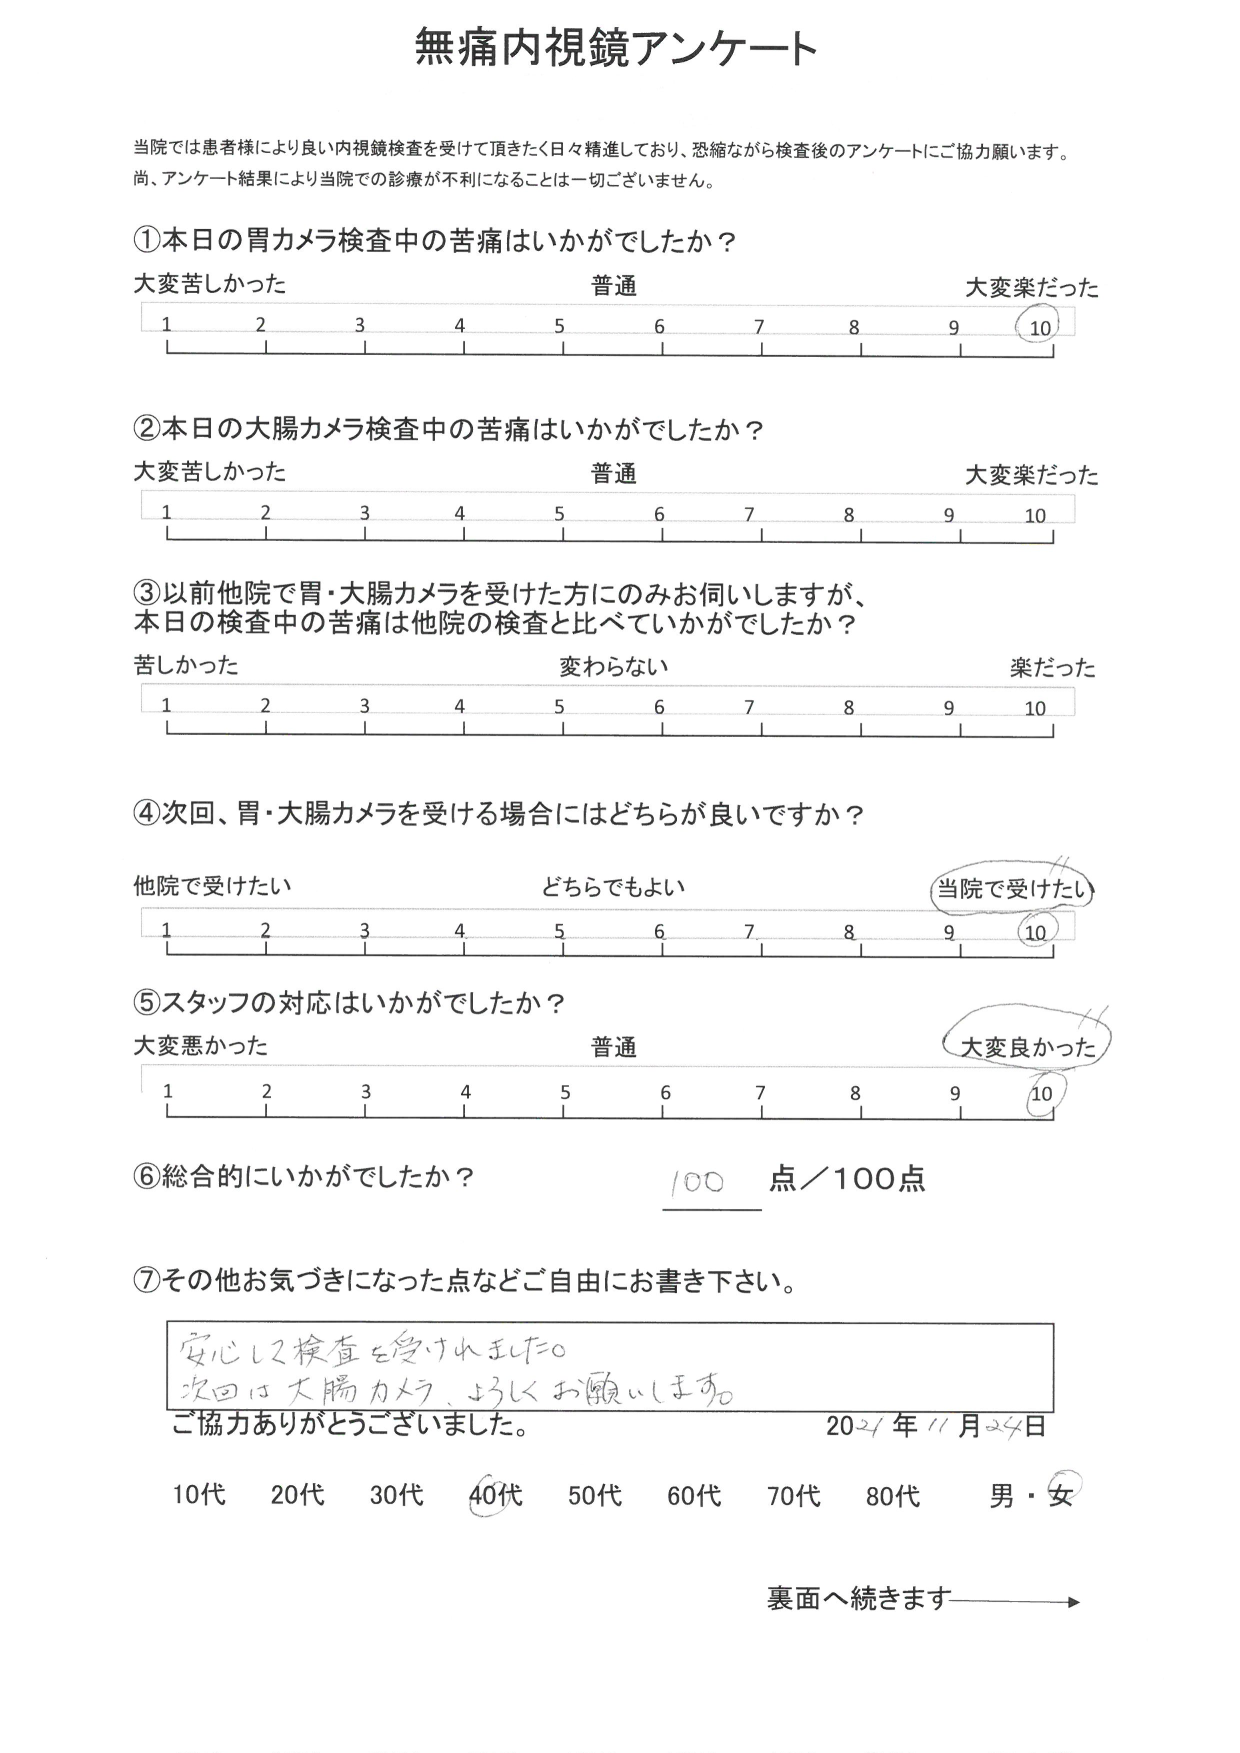 無痛内視鏡アンケート
当院では患者様により良い内視鏡検査を受けて頂きたく日々精進しており、恐縮ながら検査後のアンケートにご協力願います。
尚、アンケート結果により当院での診療が不利になることは一切ございません。
①本日の胃カメラ検査中の苦痛はいかがでしたか？
大変苦しかった 普通 大変楽だった
1 2 3 4 5 6 7 8 9 10
②本日の大腸カメラ検査中の苦痛はいかがでしたか？
大変苦しかった 普通 大変楽だった
1 2 3 4 5 6 7 8 9 10
③以前他院で胃・大腸カメラを受けた方にのみお伺いしますが、
本日の検査中の苦痛は他院の検査と比べていかがでしたか？
苦しかった 変わらない 楽だった
1 2 3 4 5 6 7 8 9 10
④次回、胃・大腸カメラを受ける場合にはどちらが良いですか？
他院で受けたい どちらでもよい 当院で受けたい
1 2 3 4 5 6 7 8 9 10
⑤スタッフの対応はいかがでしたか？
大変悪かった 普通 大変良かった
1 2 3 4 5 6 7 8 9 10
⑥総合的にいかがでしたか？ 100 点／100点
⑦その他お気づきになった点などご自由にお書き下さい。
安心して検査を受けれました。
次回は大腸カメラ、よろしくお願いします。
ご協力ありがとうございました。 2021年11月24日
10代 20代 30代 40代 50代 60代 70代 80代 男・女
裏面へ続きます